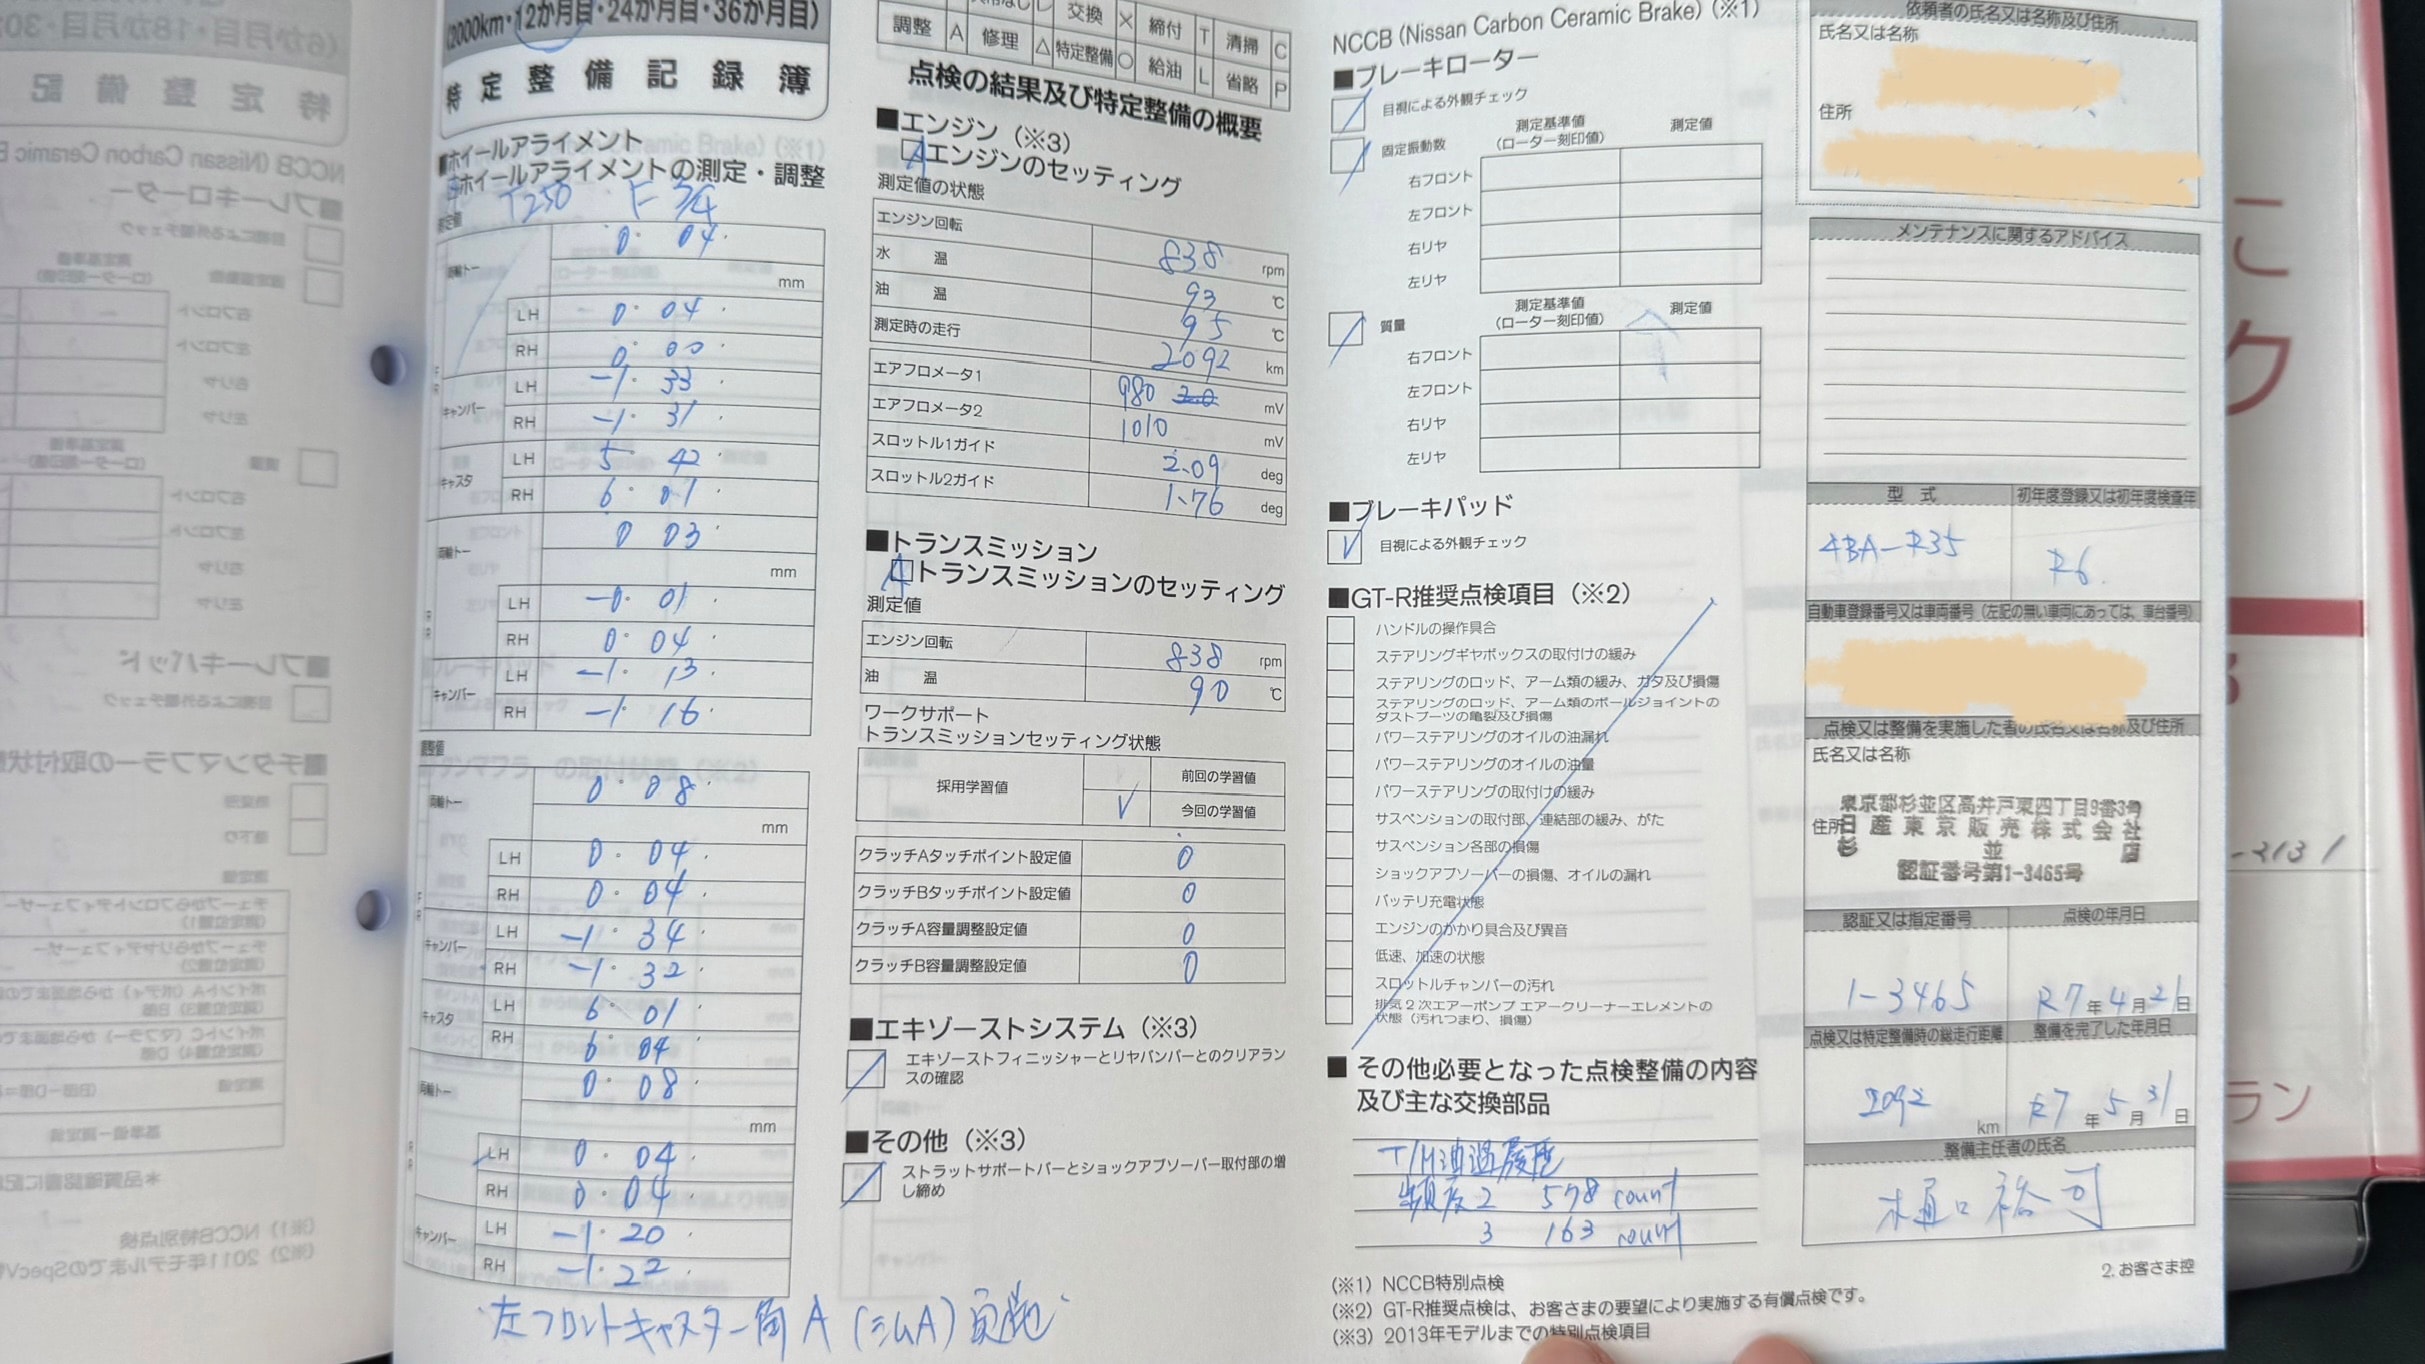 (2000km・12か月目・24か月目・36か月目)
特定整備記録簿
■ホイールアライメント
ホイールアライメントの測定・調整
T250 F 3/4
測定値
両輪トー 0・04
mm
LH 0・04
RH 0・00
キャンバー LH -1・33
RH -1・31
キャスタ LH 5・42
RH 6・01
両輪トー 0 03
mm
LH -0・01
RH 0・04
キャンバー LH -1・13
RH -1・16
調整値
両輪トー 0・08
mm
LH 0・04
RH 0・04
キャンバー LH -1・34
RH -1・32
キャスタ LH 6・01
RH 6・04
両輪トー 0・08
mm
LH 0・04
RH 0・04
キャンバー LH -1・20
RH -1・22
左フロントキャスター角A(シムA)実施
交換 × 締付 T 清掃 C
調整 A 修理 △ 特定整備 ○ 給油 L 省略 P
点検の結果及び特定整備の概要
■エンジン(※3)
A エンジンのセッティング
測定値の状態
エンジン回転 838 rpm
水温 93 ℃
油温 95 ℃
測定時の走行 2092 km
エアフロメータ1 980 mV
エアフロメータ2 1010 mV
スロットル1ガイド 2.09 deg
スロットル2ガイド 1.76 deg
■トランスミッション
A トランスミッションのセッティング
測定値
エンジン回転 838 rpm
油温 90 ℃
ワークサポート
トランスミッションセッティング状態
採用学習値 前回の学習値
V 今回の学習値
クラッチAタッチポイント設定値 0
クラッチBタッチポイント設定値 0
クラッチA容量調整設定値 0
クラッチB容量調整設定値 0
■エキゾーストシステム(※3)
エキゾーストフィニッシャーとリヤバンパーとのクリアラン
スの確認
■その他(※3)
ストラットサポートバーとショックアブソーバー取付部の増
し締め
NCCB (Nissan Carbon Ceramic Brake) (※1)
■ブレーキローター
目視による外観チェック
固定振動数 測定基準値 測定値
(ローター刻印値)
右フロント
左フロント
右リヤ
左リヤ
質量 測定基準値 測定値
(ローター刻印値)
右フロント
左フロント
右リヤ
左リヤ
■ブレーキパッド
V 目視による外観チェック
■GT-R推奨点検項目(※2)
ハンドルの操作具合
ステアリングギヤボックスの取付けの緩み
ステアリングのロッド、アーム類の緩み、ガタ及び損傷
ステアリングのロッド、アーム類のボールジョイントの
ダストブーツの亀裂及び損傷
パワーステアリングのオイルの油漏れ
パワーステアリングのオイルの油量
パワーステアリングの取付けの緩み
サスペンションの取付部、連結部の緩み、がた
サスペンション各部の損傷
ショックアブソーバーの損傷、オイルの漏れ
バッテリ充電状態
エンジンのかかり具合及び異音
低速、加速の状態
スロットルチャンバーの汚れ
排気2次エアーポンプ エアークリーナーエレメントの
状態(汚れつまり、損傷)
■その他必要となった点検整備の内容
及び主な交換部品
T/M油温履歴
頻度2 578 count
3 163 count
(※1) NCCB特別点検
(※2) GT-R推奨点検は、お客さまの要望により実施する有償点検です。
(※3) 2013年モデルまでの特別点検項目
依頼者の氏名又は名称及び住所
氏名又は名称
住所
メンテナンスに関するアドバイス
型式 初年度登録又は初年度検査年
4BA-R35 R6.
自動車登録番号又は車両番号(左記の無い車両にあっては、車台番号)
点検又は整備を実施した者の氏名又は名称及び住所
氏名又は名称
東京都杉並区高井戸東四丁目9番3号
住所 日産東京販売株式会社
杉並店
認証番号第1-3465号
認証又は指定番号 点検の年月日
1-3465 R7年4月21日
点検又は特定整備時の総走行距離 整備を完了した年月日
2092 km R7年5月31日
整備主任者の氏名
樋口裕可
2. お客さま控